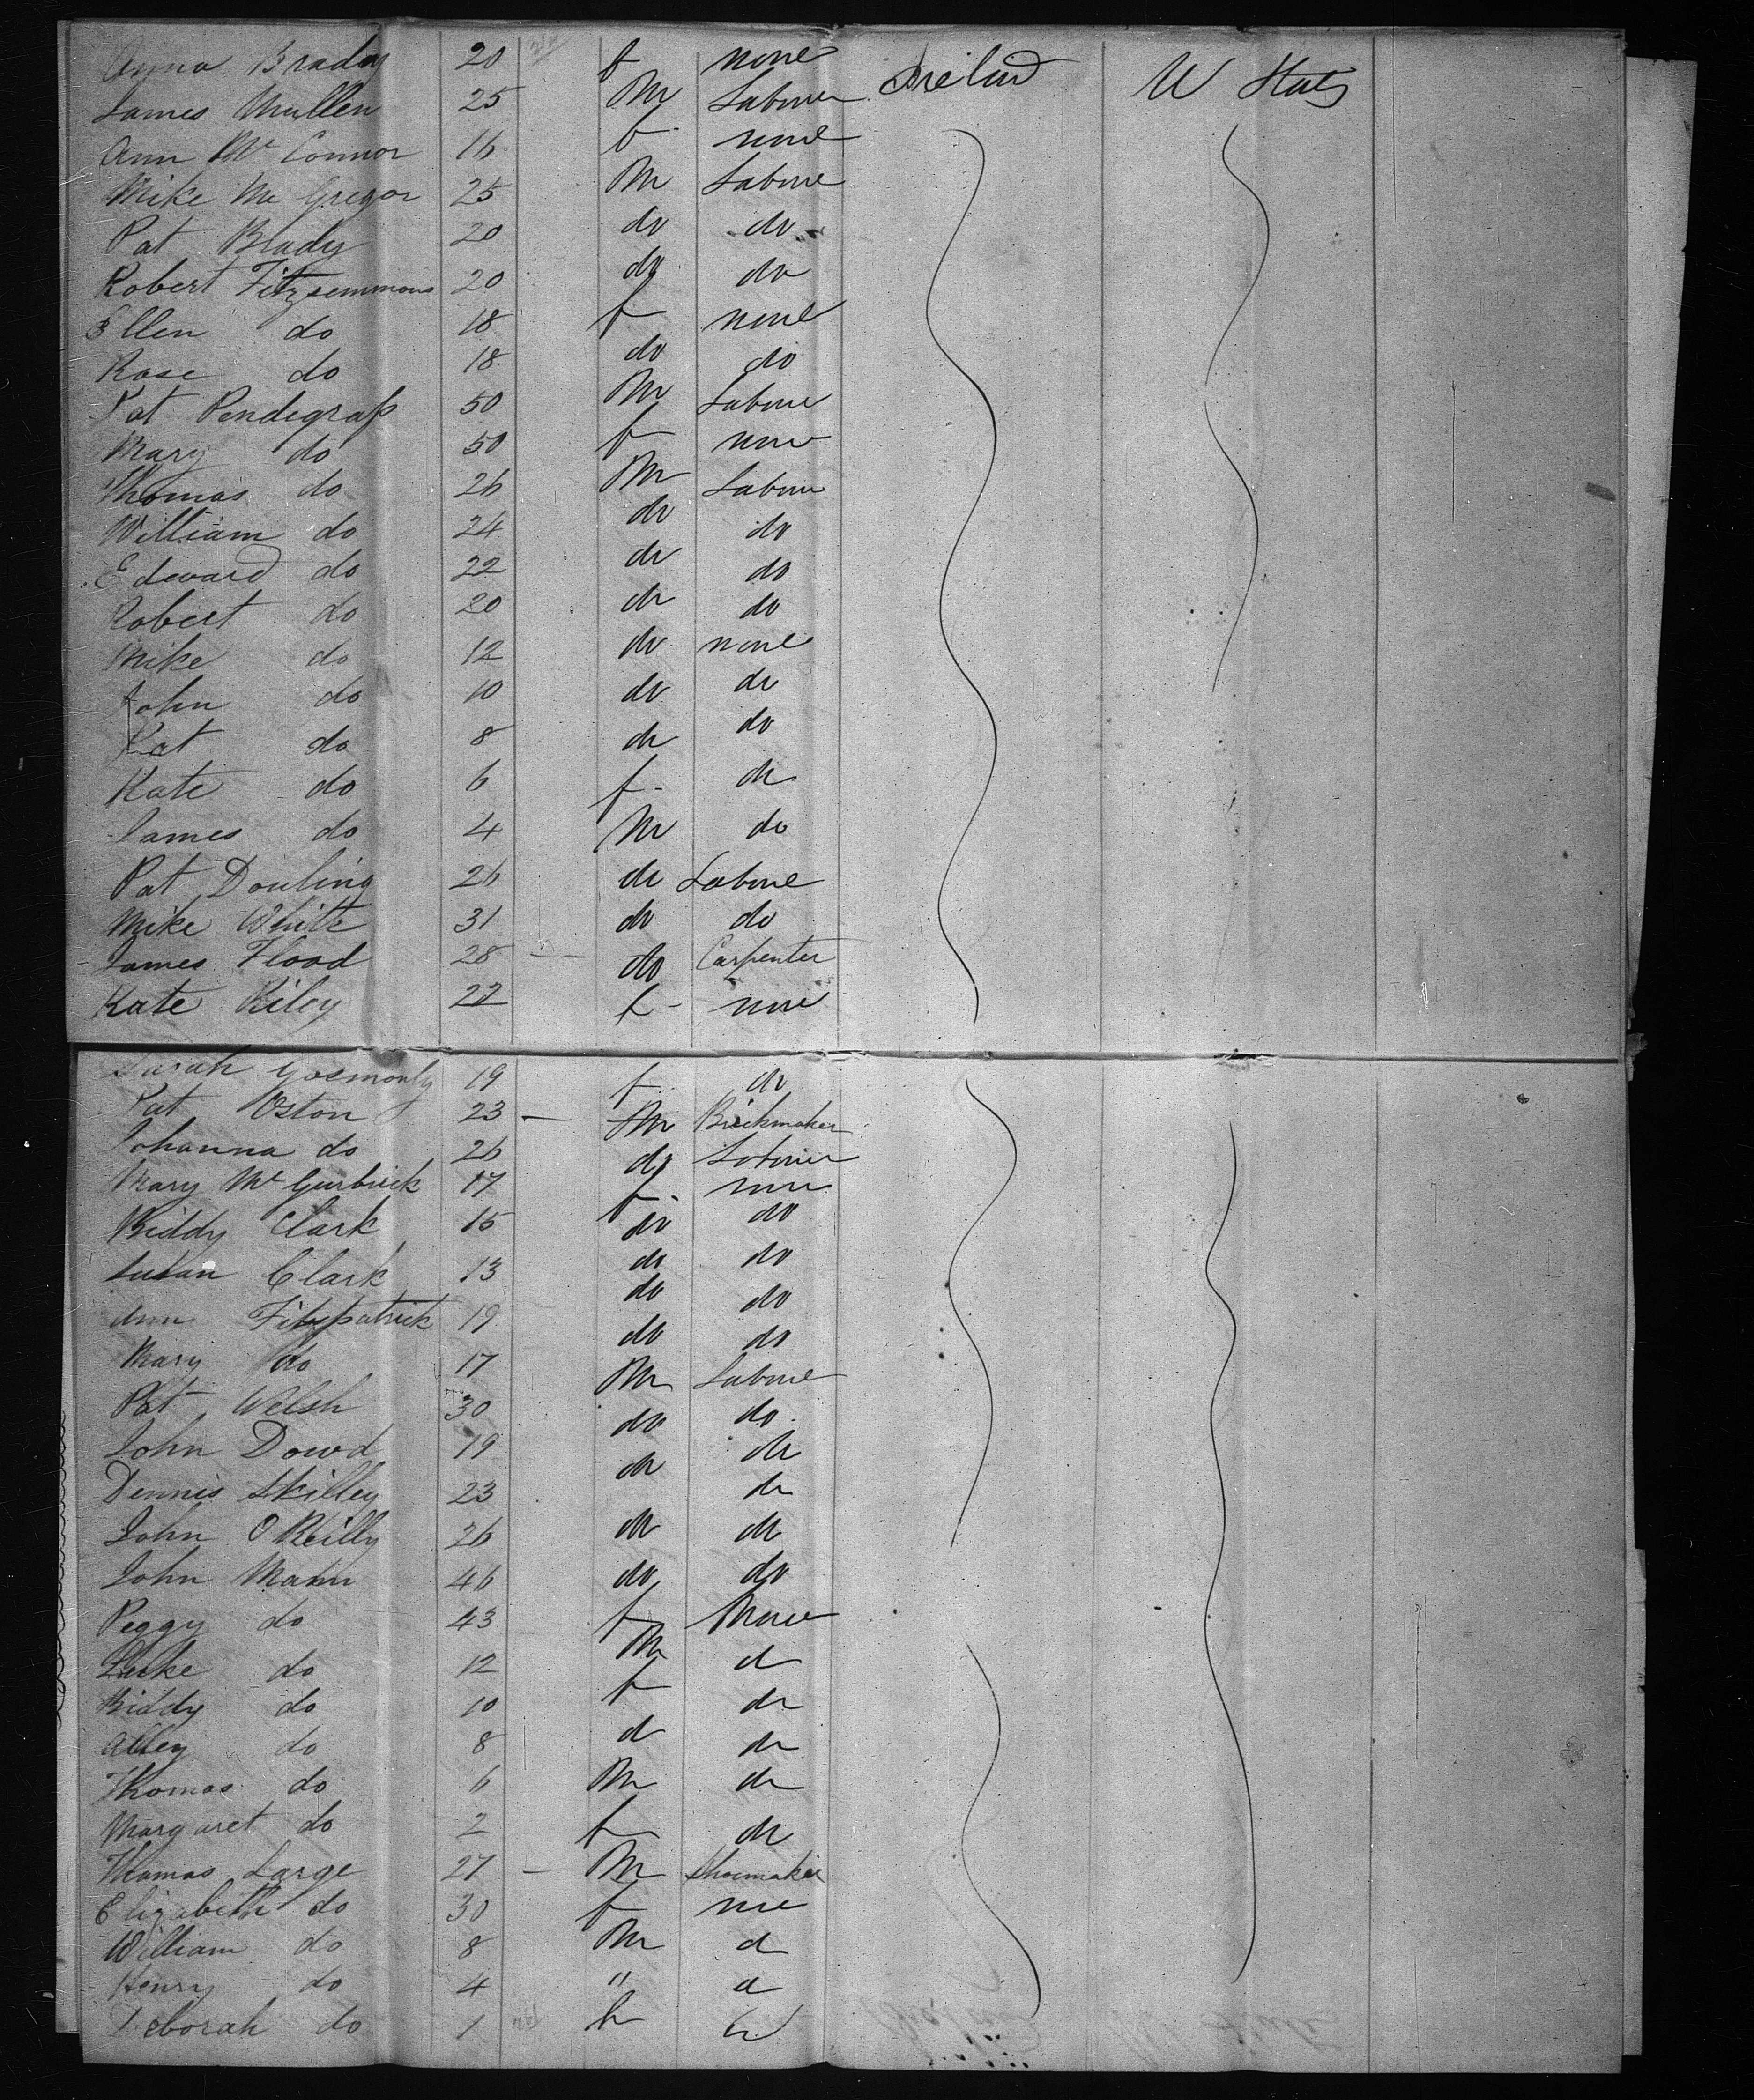 Anna Brady 20 f none Ireland U States
James Mullen 25 M Laborer
Ann Mc Connor 16 f none
Mike Mc Gregor 25 M Labore
Pat Brady 20 do do
Robert Fitzsemmons 20 do do
Ellen do 18 f none
Rose do 18 do do
Pat Pendegrass 50 M Labore
Mary do 50 f none
Thomas do 26 M Labore
William do 24 do do
Edward do 22 do do
Robert do 20 do do
Mike do 12 do none
John do 10 do do
Pat do 8 do do
Kate do 6 f do
James do 4 M do
Pat Douling 26 do Labore
Mike White 31 do do
James Flood 28 do Carpenter
Kate Riley 22 f none
Sarah 19 f do
Pat Oston 23 M Brickmaker
Johanna do 26 do Laborer
Mary Mc 17 f none
Biddy Clark 15 do do
Susan Clark 13 do do
Ann Fitzpatrick 19 do do
Mary do 17 do do
Pat Welsh 30 M Labore
John Dowd 19 do do
Dennis Skilley 23 do do
John O Reilly 26 do do
John Mann 46 do do
Peggy do 43 f None
Luke do 12 M d
Biddy do 10 f do
Alley do 8 d do
Thomas do 6 M do
Margaret do 2 f do
Thomas Large 27 M Shoemaker
Elizabeth do 30 f ne
William do 8 M d
Henry do 4 " d
Deborah do 1